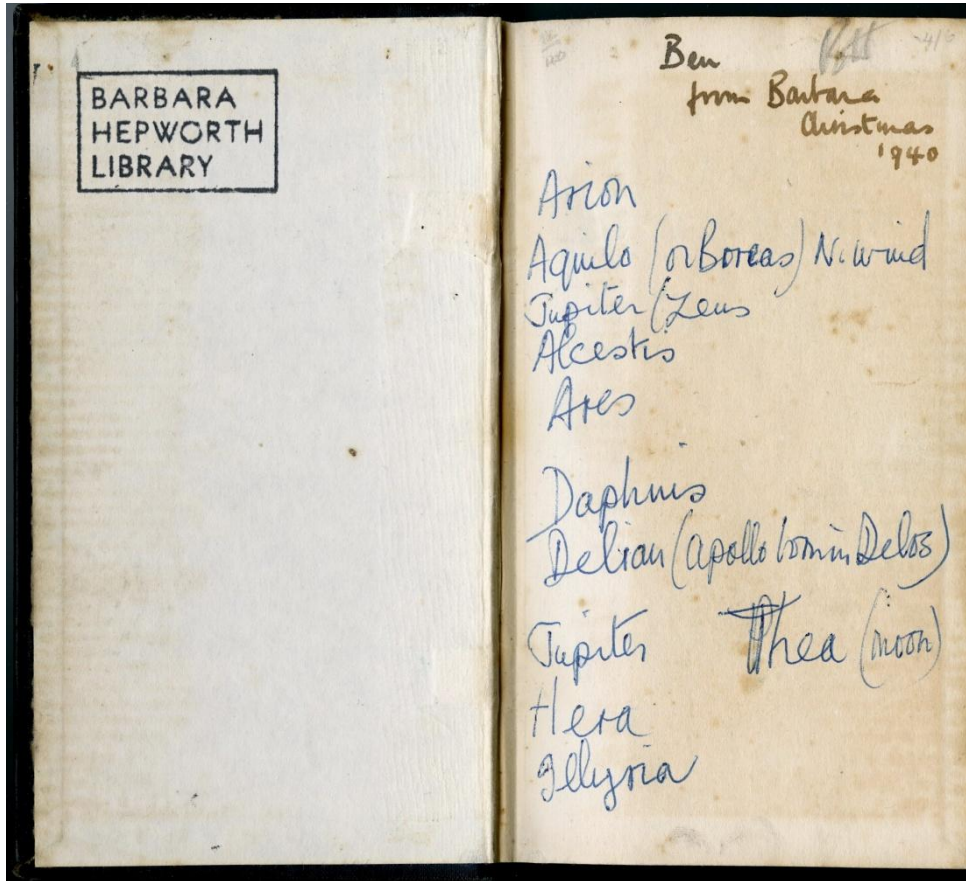 BARBARA
HEPWORTH
LIBRARY
4/6
Ben
from Barbara
Christmas
1940
Arion
Aquilo (or Boreas) N. wind
Jupiter (Zeus
Alcestis
Ares
Daphnis
Delian (apollo born in Delos)
Jupiter Thea (moon)
Hera
Illyria